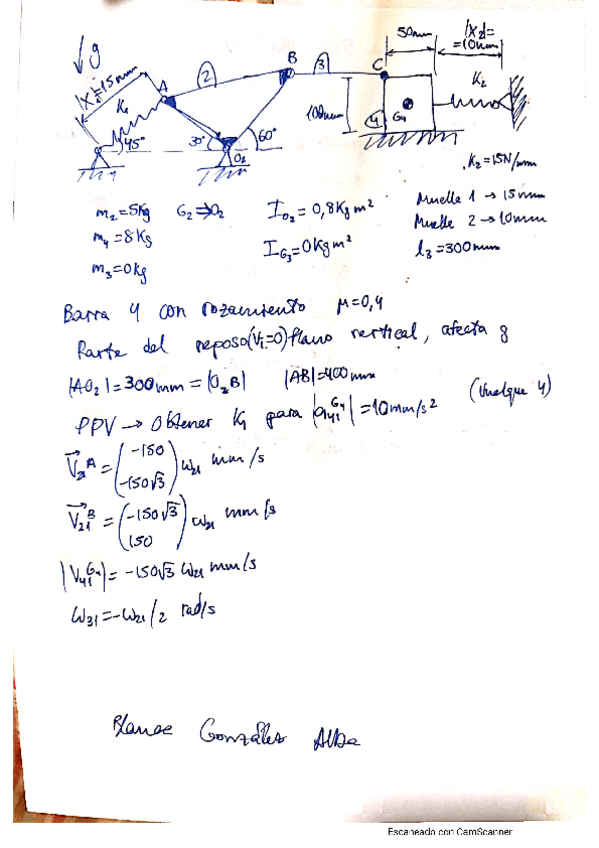 50mm |X₂|=
=10mm
↓g
|X₁|=15mm
K₁
A
2
B
3
C
K₂
100mm
4
G₄
45°
30°
60°
O₂
K₂=15N/mm
m₂=5Kg G₂⇒O₂ I_O₂=0,8Kg m² Muelle 1 → 15mm
m₄=8Kg I_G₃=0Kg m² Muelle 2 → 10mm
m₃=0Kg l₃=300mm
Barra 4 con rozamiento μ=0,4
Parte del reposo(Vᵢ=0) plano vertical, afecta g
|AO₂|=300mm=|O₂B| |AB|=400mm
PPV → Obtener K₁ para |a₄₁^G₄|=10mm/s² (Vuelque 4)
V₂₁^A=(-150 -150√3) ω₂₁ mm/s
V₂₁^B=(-150√3 150) ω₂₁ mm/s
|V₄₁^G₄|=-150√3 ω₂₁ mm/s
ω₃₁=-ω₂₁/2 rad/s
González Alba
Escaneado con CamScanner